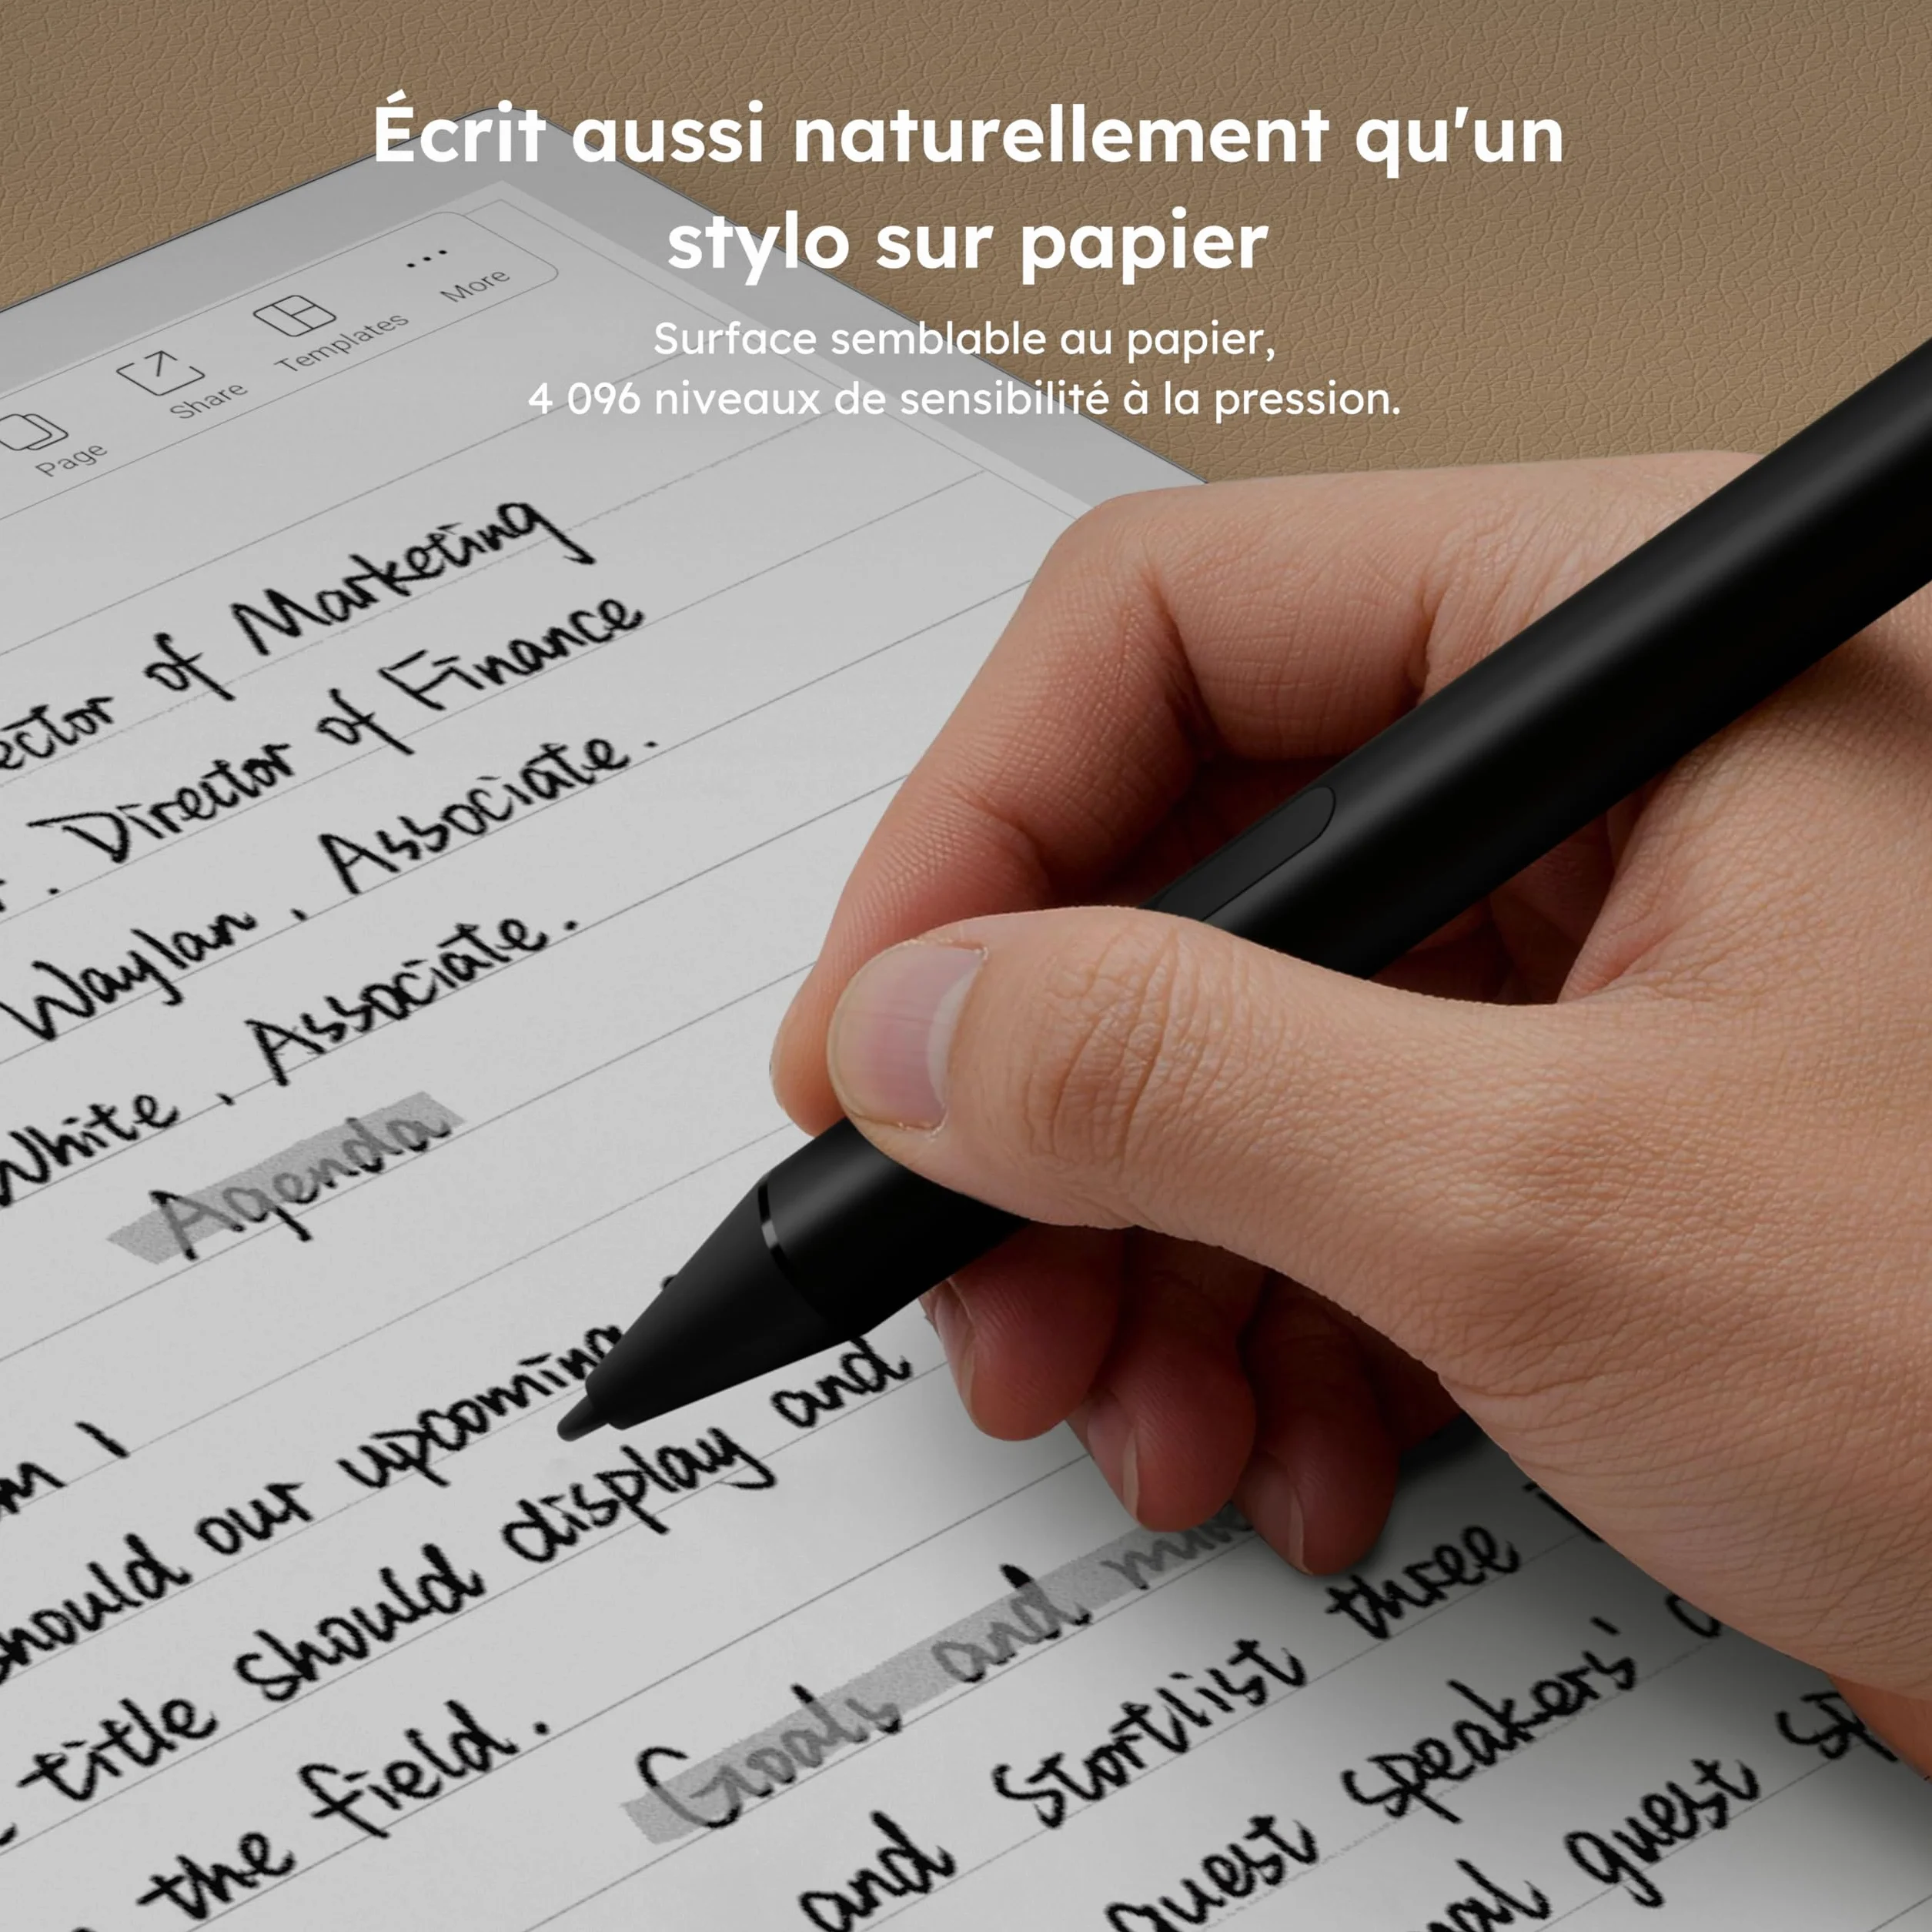 Écrit aussi naturellement qu'un
stylo sur papier
Surface semblable au papier,
4 096 niveaux de sensibilité à la pression.
Page Share Templates ... More
of Marketing
. Director of Finance
Waylan , Associate .
White , Associate .
Agenda
1
should our upcoming
title should display and
the field .
Goals and
and Stortlist three
guest speakers'
guest